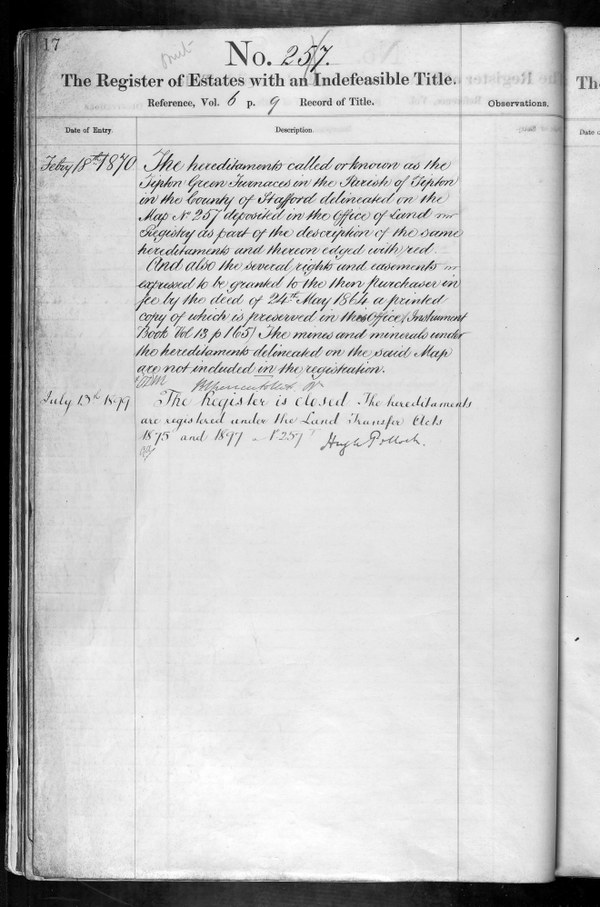 17
No. 257.
The Register of Estates with an Indefeasible Title.
Reference, Vol. 6 p. 9 Record of Title.
Observations.
Date of Entry.
Description.
Feby 18th 1870
The hereditaments called or known as the
Tipton Green Furnaces in the Parish of Tipton
in the County of Stafford delineated on the
Map No 257 deposited in the Office of Land
Registry as part of the description of the same
hereditaments and thereon edged with red.
And also the several rights and easements
expressed to be granted to the then purchaser in
fee by the deed of 24th May 1864 a printed
copy of which is preserved in this Office (Instrument
Book Vol 13 p 165) The mines and minerals under
the hereditaments delineated on the said Map
are not included in the registration.
July 13th 1899
The Register is closed. The hereditaments
are registered under the Land Transfer Acts
1875 and 1897 No 257
Hugh Pollock.
Th
Date o